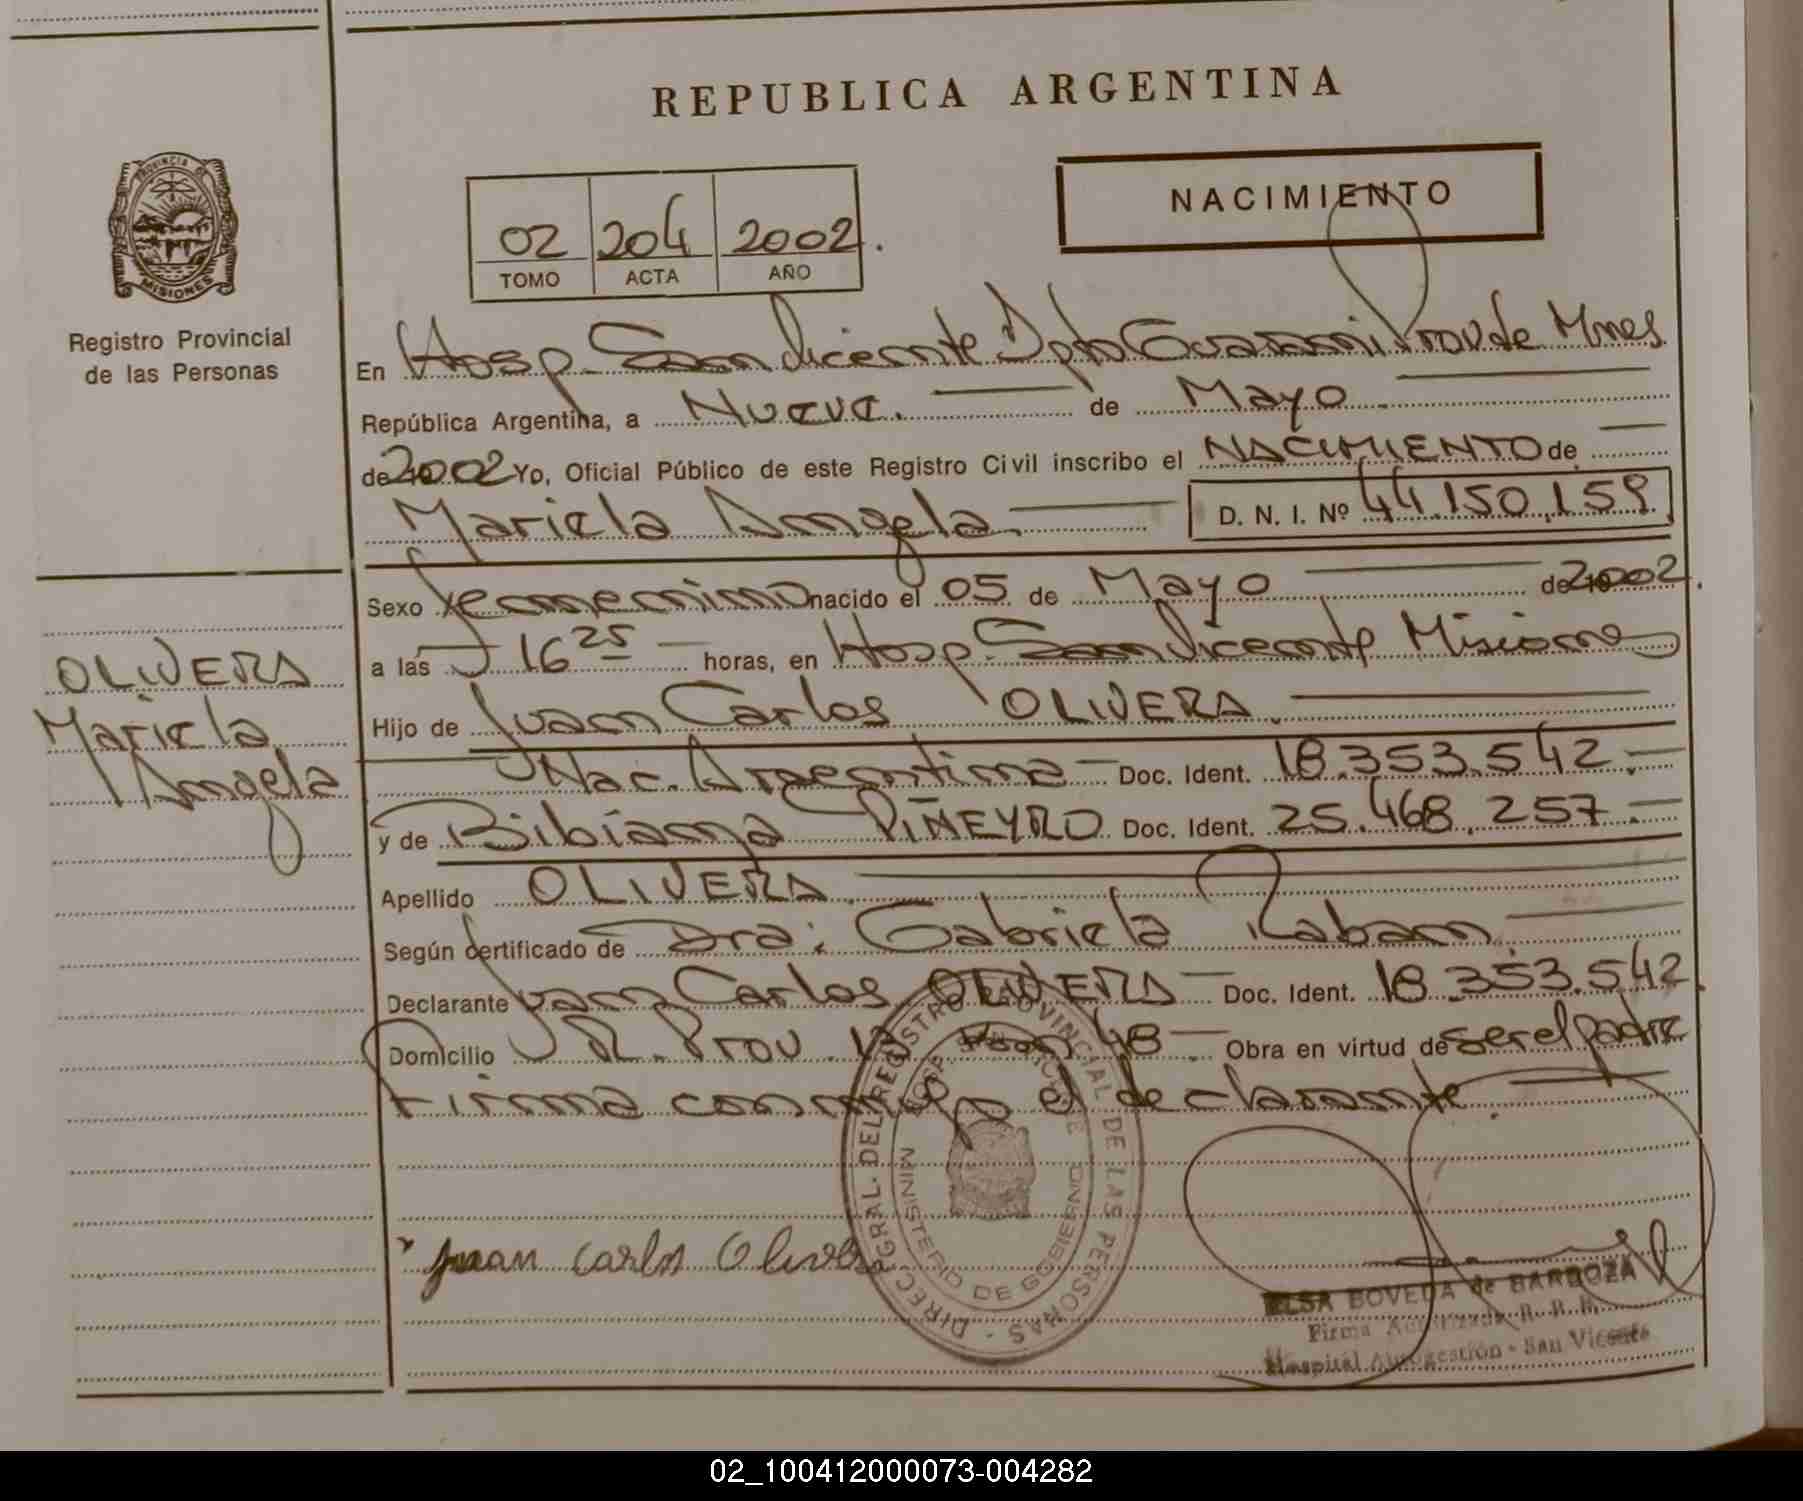 REPUBLICA ARGENTINA
PROVINCIA DE
MISIONES
Registro Provincial
de las Personas
NACIMIENTO
02 204 2002.
TOMO ACTA AÑO
En Hosp. San Vicente Dpto Guarani Prov de Mnes
República Argentina, a Nueve. de Mayo
de 2002 Yo, Oficial Público de este Registro Civil inscribo el NACIMIENTO de
Mariela Angela. D. N. I. Nº 44.150.159
Sexo Femenino nacido el 05 de Mayo de 2002.
a las 16 25 horas, en Hosp. San Vicente Misiones
Hijo de Juan Carlos OLIVERA.
Nac. Argentina Doc. Ident. 18.353.542.
y de Bibiana PIÑEYRO Doc. Ident. 25.468.257.
Apellido OLIVERA.
Según certificado de Dra: Gabriela Raban
Declarante Juan Carlos OLIVERA Doc. Ident. 18.353.542.
Domicilio R. Prov. 13 Km 48 Obra en virtud de ser el padre
Firma conmigo el declarante.
OLIVERA
Mariela
Angela
DIREC. GRAL. DEL REGISTRO PROVINCIAL DE LAS PERSONAS
HOSP. SAN VICENTE
MINISTERIO DE GOBIERNO
Juan Carlos Olivera
ELSA BOVEDA de BARBOZA
Firma Autorizada
Hospital Autogestión - San Vicente
02_100412000073-004282